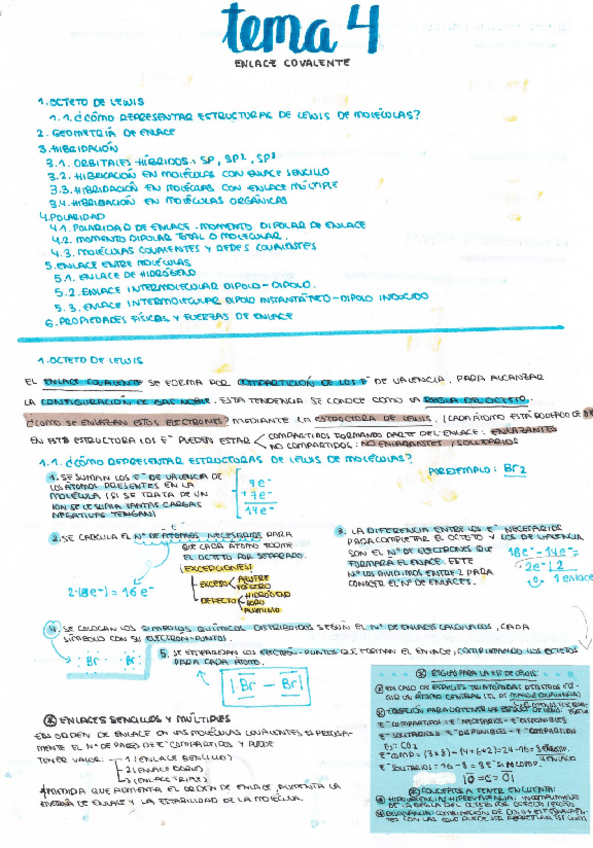 tema 4
ENLACE COVALENTE
1. OCTETO DE LEWIS
1.1. ¿CÓMO REPRESENTAR ESTRUCTURAS DE LEWIS DE MOLÉCULAS?
2. GEOMETRÍA DE ENLACE
3. HIBRIDACIÓN
3.1. ORBITALES HÍBRIDOS: SP, SP², SP³
3.2. HIBRICACIÓN EN MOLÉCULAS CON ENLACE SENCILLO
3.3. HIBRIDACIÓN EN MOLÉCULAS CON ENLACE MÚLTIPLE
3.4. HIBRIDACIÓN EN MOLÉCULAS ORGÁNICAS
4. POLARIDAD
4.1. POLARIDAD DE ENLACE. MOMENTO DIPOLAR DE ENLACE
4.2. MOMENTO DIPOLAR TOTAL O MOLECULAR.
4.3. MOLÉCULAS COVALENTES Y REDES COVALENTES
5. ENLACE ENTRE MOLÉCULAS
5.1. ENLACE DE HIDRÓGENO
5.2. ENLACE INTERMOLECULAR DIPOLO-DIPOLO.
5.3. ENLACE INTERMOLECULAR DIPOLO INSTANTÁNEO-DIPOLO INDUCIDO
6. PROPIEDADES FÍSICAS Y FUERZAS DE ENLACE
1. OCTETO DE LEWIS
EL ENLACE COVALENTE SE FORMA POR COMPARTICIÓN DE LOS e⁻ DE VALENCIA, PARA ALCANZAR
LA CONFIGURACIÓN DE GAS NOBLE. ESTA TENDENCIA SE CONOCE COMO LA REGLA DEL OCTETO.
¿CÓMO SE ENLAZAN ESTOS ELECTRONES? MEDIANTE LA ESTRUCTURA DE LEWIS. (CADA ÁTOMO ESTÁ RODEADO DE 8e⁻
EN ESTA ESTRUCTURA LOS e⁻ PUEDEN ESTAR
COMPARTIDOS FORMANDO PARTE DEL ENLACE: ENLAZANTES
NO COMPARTIDOS: NO ENLAZANTES / SOLITARIOS
1.1. ¿CÓMO REPRESENTAR ESTRUCTURAS DE LEWIS DE MOLÉCULAS?
POR EJEMPLO: Br2
1. SE SUMAN LOS e⁻ DE VALENCIA DE
LOS ÁTOMOS PRESENTES EN LA
MOLÉCULA (SI SE TRATA DE UN
ION SE LE SUMA TANTAS CARGAS
NEGATIVAS TENGAN)
+ 7e⁻
14e⁻
2. SE CALCULA EL Nº DE ÁTOMOS NECESARIOS PARA
QUE CADA ÁTOMO TOME
EL OCTETO POR SEPARADO.
EXCEPCIONES:
EXCESO
AZUFRE
FÓSFORO
DEFECTO
HIDRÓGENO
BORO
ALUMINIO
2·(8e⁻) = 16e⁻
3. LA DIFERENCIA ENTRE LOS e⁻ NECESARIOS
PARA COMPLETAR EL OCTETO Y LOS DE VALENCIA
SON EL Nº DE ELECTRONES QUE
FORMARÁ EL ENLACE. ESTE
Nº LOS DIVIDIMOS ENTRE 2 PARA
CONOCER EL Nº DE ENLACES.
16e⁻ - 14e⁻ =
2e⁻ | 2
1 enlace
4. SE COLOCAN LOS SÍMBOLOS QUÍMICOS DISTRIBUIDOS SEGÚN EL Nº DE ENLACE CALCULADOS, CADA
SÍMBOLO CON SU ELECTRÓN-PUNTOS.
Br Br
5. SE EMPAREJAN LOS ELECTRÓN-PUNTOS QUE FORMAN EL ENLACE, COMPLETANDO LOS OCTETOS
PARA CADA ÁTOMO.
|Br — Br|
ENLACES SENCILLOS Y MÚLTIPLES
EL ORDEN DE ENLACE EN LAS MOLÉCULAS COVALENTES ES PRECISA-
MENTE EL Nº DE PARES DE e⁻ COMPARTIDOS Y PUEDE
TENER VALOR:
1 (ENLACE SENCILLO)
2 (ENLACE DOBLE)
3 (ENLACE TRIPLE)
A MEDIDA QUE AUMENTA EL ORDEN DE ENLACE, AUMENTA LA
ENERGÍA DE ENLACE Y LA ESTABILIDAD DE LA MOLÉCULA.
REGLAS PARA LA EST DE LEWIS
EN CASO DE ESPECIES TRIATÓMICAS DEBEMOS
UN ÁTOMO CENTRAL (EL DE MENOR
e⁻ COMPARTIDOS = e⁻ NECESARIOS - e⁻ DISPONIBLES
e⁻ SOLITARIOS = e⁻ DISPONIBLES - e⁻ COMPARTIDOS
Ej: CO2
e⁻ COMP = (3×8) - (4+6×2) = 24-16 = 8
4 ENLACES
e⁻ SOLITARIOS = 16 - 8 = 8e⁻ SIN COMP.
|O=C=O|
CONCEPTOS A TENER EN CUENTA:
HIPOVALENCIA/HIPERVALENCIA: INCUMPLIMIENTO
DE LA REGLA DEL OCTETO POR DEFECTO/EXCESO
RESONANCIA: COMBINACIÓN DE